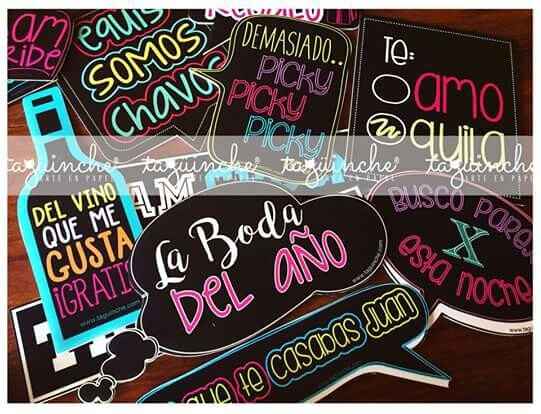 am
RIBE
equis
SOMOS
chavos
DEMASIADO..
PICKY
PICKY
PICKY
TE:
amo
quila
taguinche®
ARTE EN PAPEL
DEL VINO
QUE ME
GUSTA
¡GRATIS
www.taguinche.com
AM
La Boda
DEL AÑO
www.taguinche.com
BUSCO PAREJA
X
esta noche
www.taguinche.com
que te casabas Juan